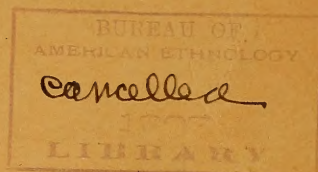 BUREAU OF
AMERICAN ETHNOLOGY
cancelled
LIBRARY